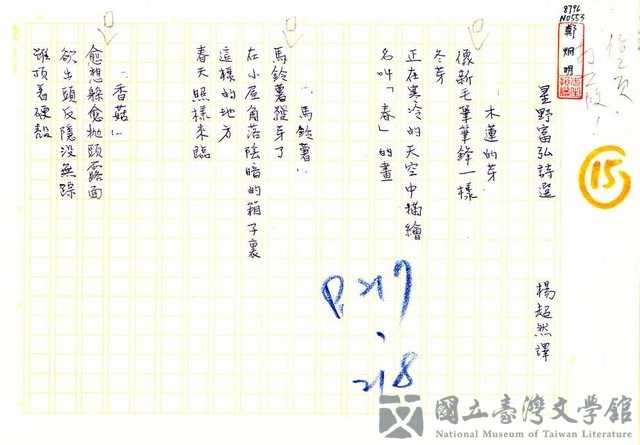 8796
N0553
鄭烱明
15
星野富弘詩選
楊超然譯
·木蓮的芽·
像新毛筆筆鋒一樣
冬芽
正在寒冷的天空中描繪
名叫「春」的畫
·馬鈴薯·
馬鈴薯蹤芽了
在小屋角落陰暗的箱子裏
這樣的地方
春天照樣來臨
·香菇·
愈想躲愈拋頭露面
欲出頭反隱没無踪
雖頂着硬殼
P.217、218
國立臺灣文學館
National Museum of Taiwan Literature